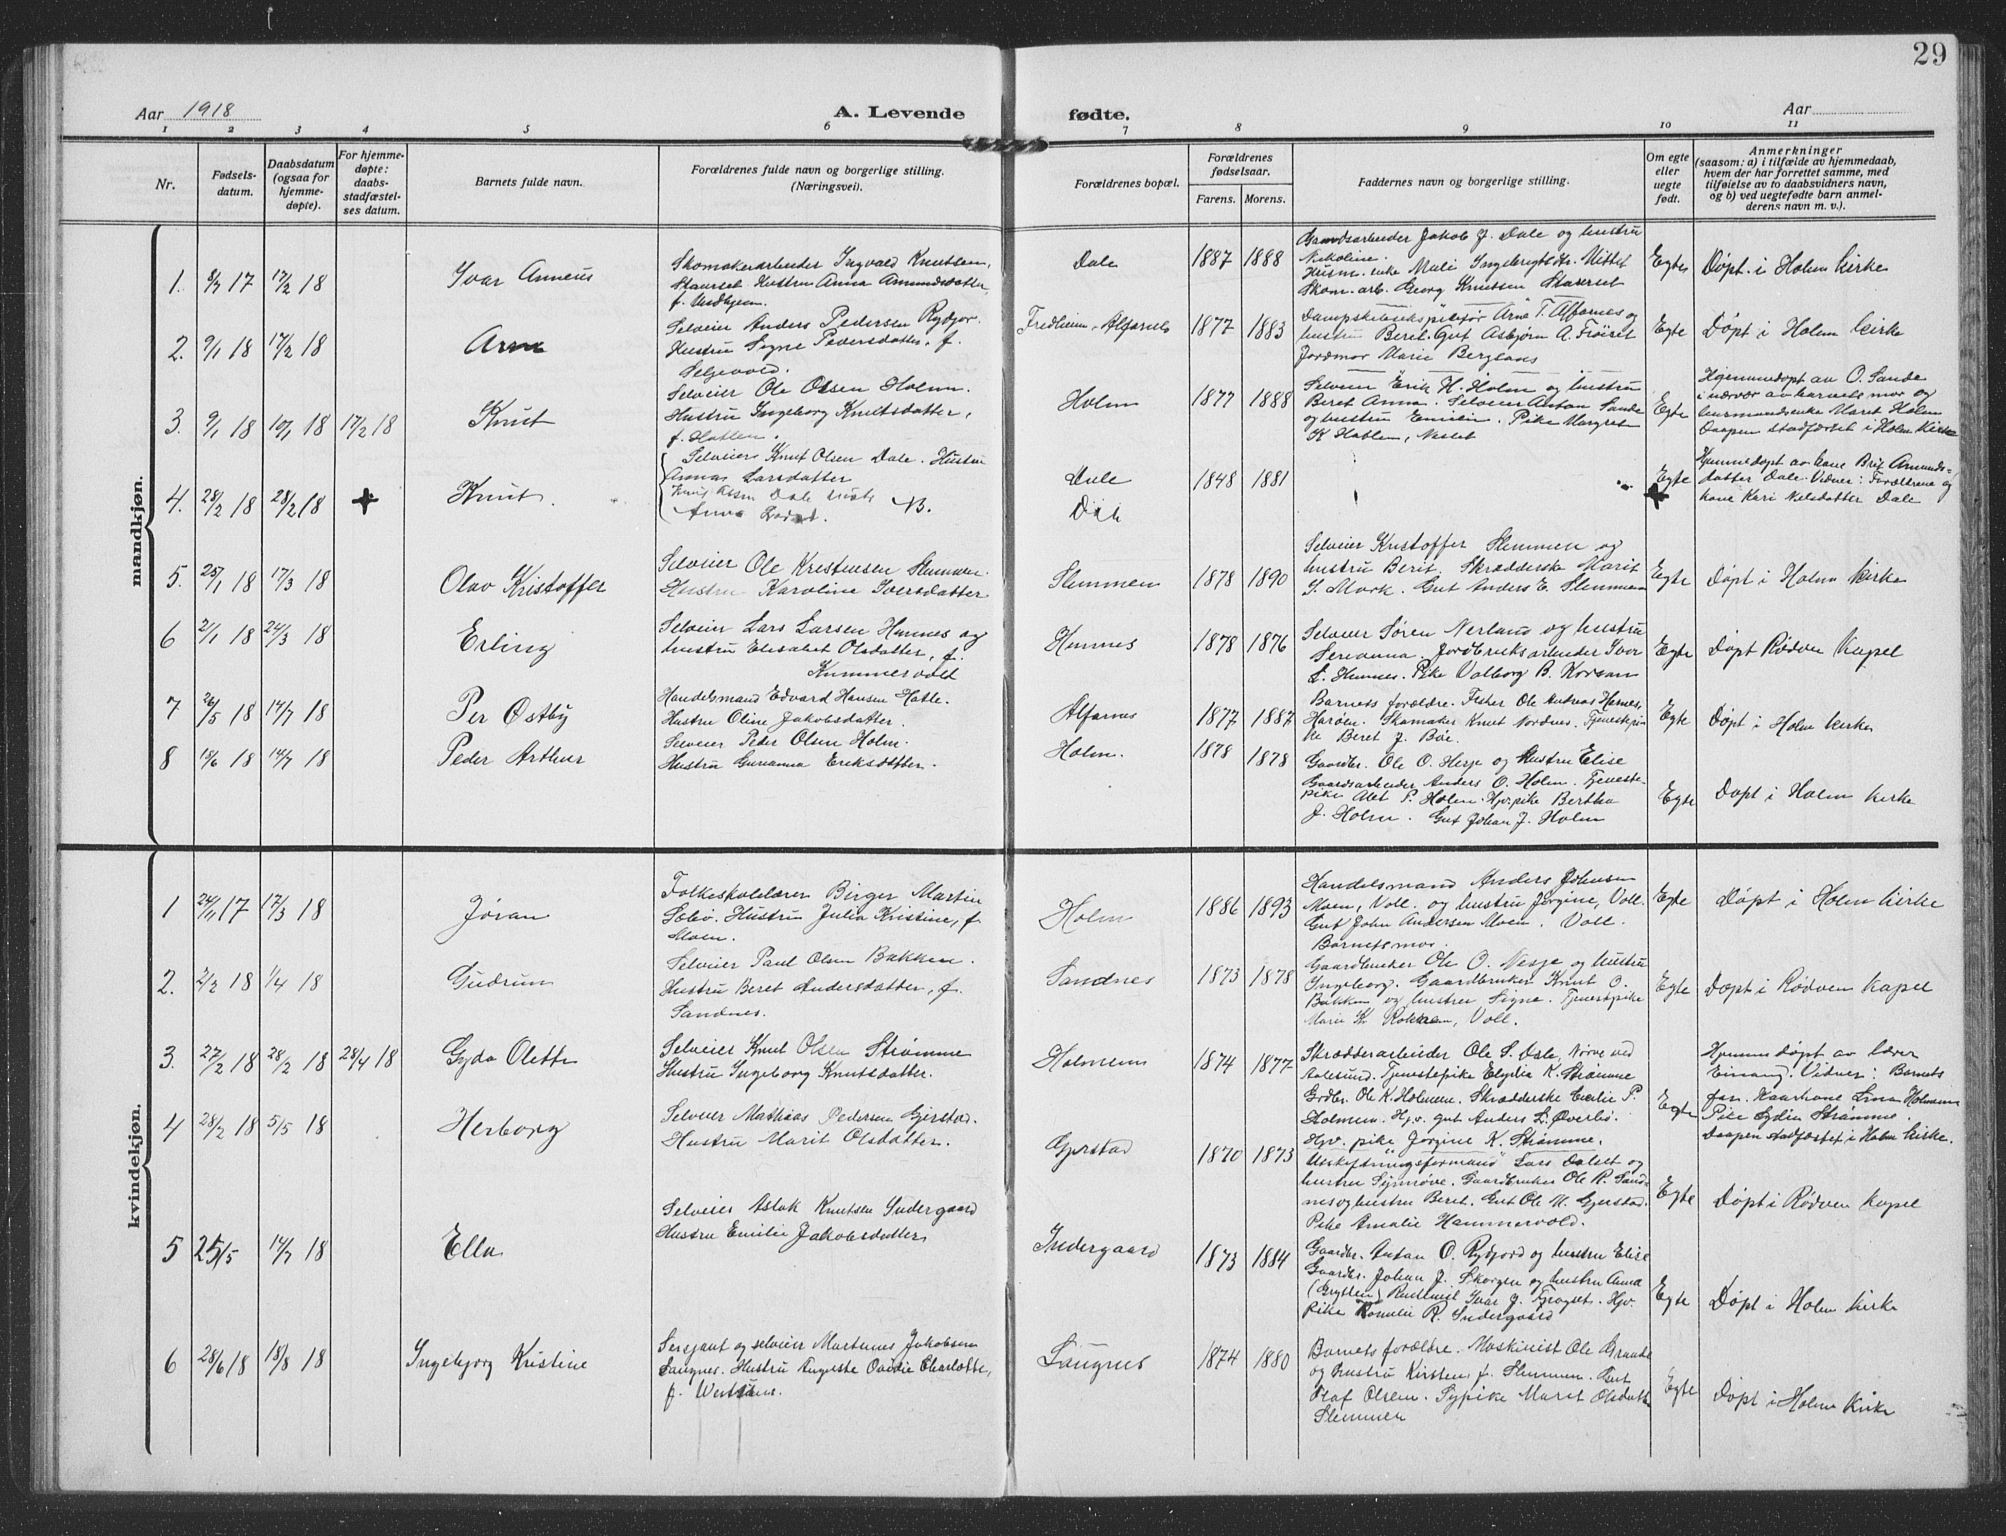 29
Aar 1918
A. Levende fødte.
Aar
1 2 3 4 5 6 7 8 9 10 11
Nr.
Fødsels-
datum.
Daabsdatum
(ogsaa for
hjemme-
døpte).
For hjemme-
døpte:
daabs-
stadfæstel-
ses datum.
Barnets fulde navn.
Forældrenes fulde navn og borgerlige stilling.
(Næringsvei).
Forældrenes bopæl.
Forældrenes
fødselsaar.
Farens. Morens.
Faddernes navn og borgerlige stilling.
Om egte
eller
uegte
født.
Anmerkninger
(saasom: a) i tilfælde av hjemmedaab,
hvem der har forrettet samme, med
tilføielse av to daabsvidners navn,
og b) ved uegtefødte barn anmel-
derens navn m. v.).
mandkjøn.
1. 9/7 17 17/2 18 Ivar Anneus
Skomakerarbeider Ingvald Knutsen,
Hustru Anna Amundsdatter,
Dale 1887 1888
Gaardsarbeider Jakob J. Dale og hustru
Nikoline.
Husm. enke Mali Ingebrigtsdtr. Mittet
Skom. arb. Georg Knutsen
Egte Døpt i Holm Kirke
2. 9/1 18 17/2 18 Arne
Selveier Anders Pedersen Rydjor.
Hustru Signe Pedersdatter, f.
Seljevold.
Fredheim, Alfarnes 1877 1883
Dampskibsekspeditør Arne T. Alfarnes og
hustru Beret. Gut Asbjørn A. Frøiset
Jordmor Marie Berglans
Egte Døpt i Holm Kirke
3. 9/1 18 10/1 18 17/2 18 Knut
Selveier Ole Olsen Holm.
Hustru Ingeborg Knutsdatter,
f. Hatlen.
Holm 1877 1888
Selveier Erik H. Holm og hustru
Beret Anna. Selveier Anton Sande
og hustru Emilie. Pike Margret
K. Hatlen, Nesset
Egte
Hjemmedøpt av O. Sande
i nærvær av barnets mor og
husmandsenke Marit Holm
Daapen stadfæstet i Holm Kirke
4. 28/2 18 28/2 18 + Knut
Selveier Knut Olsen Dale. Hustru
Annas Larsdatter
NB.
Dale 1848 1881
Egte
Hjemmedøpt av kone Brit Amunds-
datter Dale. Vidner: Forældrene og
kone Kari Nilsdatter Dale
5. 25/1 18 17/3 18 Olav Kristoffer
Selveier Ole Kristensen Slemmen.
Hustru Karoline Iversdatter
Slemmen 1878 1890
Selveier Kristoffer Slemmen og
hustru Berit. Skrædderske Marit
I. Mork. Gut Anders E. Slemmen
Egte Døpt i Holm Kirke
6 2/1 18 24/3 18 Erling
Selveier Lars Larsen Hennes og
hustru Elisabet Olsdatter, f.
Hummervold
Hennes 1878 1876
Selveier Søren Nerland og hustru
Serianna. Jordbruksarbeider Ivar
L. Hennes. Pike Valborg B. Korsan
Egte Døpt Rødven Kapel
7 26/5 18 14/7 18 Per Østby
Handelsmand Edvard Hansen Hatle.
Hustru Oline Jakobsdatter.
Alfarnes 1877 1887
Barnets forældre. Fisker Ole Andreas Harnes,
Harøen. Skomaker Knut Nordnes. Tjenestepi-
ke Beret J. Bøe.
Egte Døpt i Holm Kirke
8 18/6 18 14/7 18 Peder Arthur
Selveier Peter Olsen Holm.
Hustru Gurianna Eriksdatter.
Holm. 1878 1878
Gaardbr. Ole O. Hesje og Hustru Elise
Gaardsarbeider Anders O. Holm. Tjeneste-
pike Alet P. Holm. Hjv. pike Bertha
J. Holm. Gut Johan J. Holm
Egte Døpt i Holm Kirke
kvindekjøn.
1 24/11 17 17/3 18 Jøran
Folkeskolelærer Birger Martin
Sæbø. Hustru Julie Kristine, f.
Moen.
Holm 1886 1893
Handelsmand Anders Johnsen
Moen, Voll. og hustru Jørgine, Voll.
Gut John Andersen Moen. Voll.
Barnets mor.
Egte Døpt i Holm Kirke
2. 2/2 18 1/4 18 Gudrun
Selveier Paul Olsen Bakken.
Hustru Beret Andersdatter, f.
Sandnes.
Sandnes 1873 1878
Gaardbruker Ole O. Nesje og hustru
Ingeborg. Gaardbruker Knut O.
Bakken og hustru Signe. Tjenestepike
Marie K. Rokken, Voll.
Egte Døpt i Rødven Kapel
3. 27/2 18 28/2 18 28/4 18 Gyda Olette
Selveier Knut Olsen Strømme
Hustru Ingeborg Knutsdatter.
Holmem 1874 1877
Skrædderarbeider Ole S. Dale, Nørve ved
Aalesund. Tjenestepike Elydia K. Strømme
Grdbr. Ole K. Holmem. Skrædderske Emilie P.
Holmen. Hjv. gut Anders L. Øverbø.
Hjv. pike Jørgine K. Strømme.
Egte
Hjemmedøpt av lærer
Einang. Vidner: Barnets
far. Haarkone Lina Holmem
Pike Lydia Strømme.
Daapen stadfæstet i Holm Kirke.
4 28/2 18 5/5 18 Herborg
Selveier Mathias Pedersen Gjerstad.
Hustru Marit Olsdatter.
Gjerstad 1870 1873
Utskiftningsformand Lars Dalset og
hustru Synnøve. Gaardbruker Ole R. Sand-
nes og hustru Beret. Gut Ole M. Gjerstad.
Pike Amalie Hammervold.
Egte Døpt i Rødven Kapel
5 25/5 14/7 18 Ella
Selveier Aslak Knutsen Indergaard
Hustru Emilie Jakobsdatter
Indergaard 1873 1884
Gaardbr. Anton O. Rydjord og hustru Elise
Gaardbr. Johan J. Skorgen og hustru Anna
Ivar J. Hjv.
Pike Romelie R. Indergaard
Egte Døpt i Holm Kirke
6 28/6 18 18/8 18 Ingebjorg Kristine
Sersjant og selveier Martinus Jakobsen
Laugnes. Hustru Augusta Ovidie Charlotte,
f.
Laugnes 1874 1880
Barnets forældre. Maskinist Ole Grande
og hustru Kirsten, f. Slemmen. Gut
Olaf Olsen. Sypike Marit Olsdatter
Slemmen
Egte Døpt i Holm Kirke